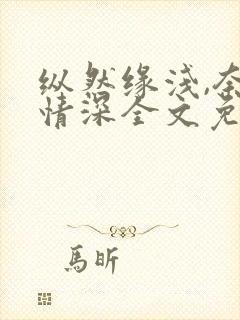 纵然缘浅,奈
情深全文免
馬昕